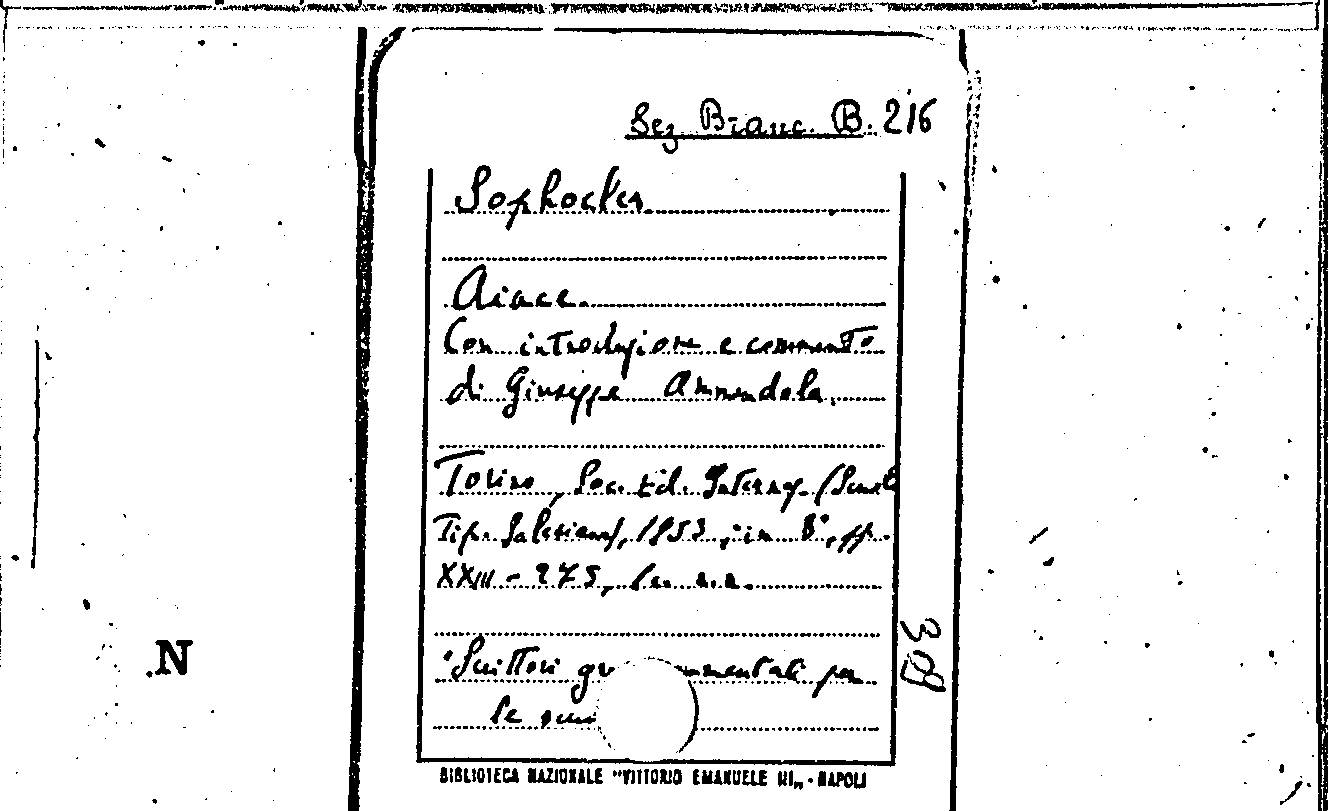 Sez. Branc. B. 216
Sophocles
Aiace.
Con introduzione e commento
di Giuseppe Ammendola.
Torino, Soc. Ed. Internaz. (Scuola
Tip. Salesiana), 1953, in 8°, pp.
XXIII - 275,
"Scrittori gr mmentati per
le scu
309
.N
BIBLIOTECA NAZIONALE "VITTORIO EMANUELE III„ - NAPOLI